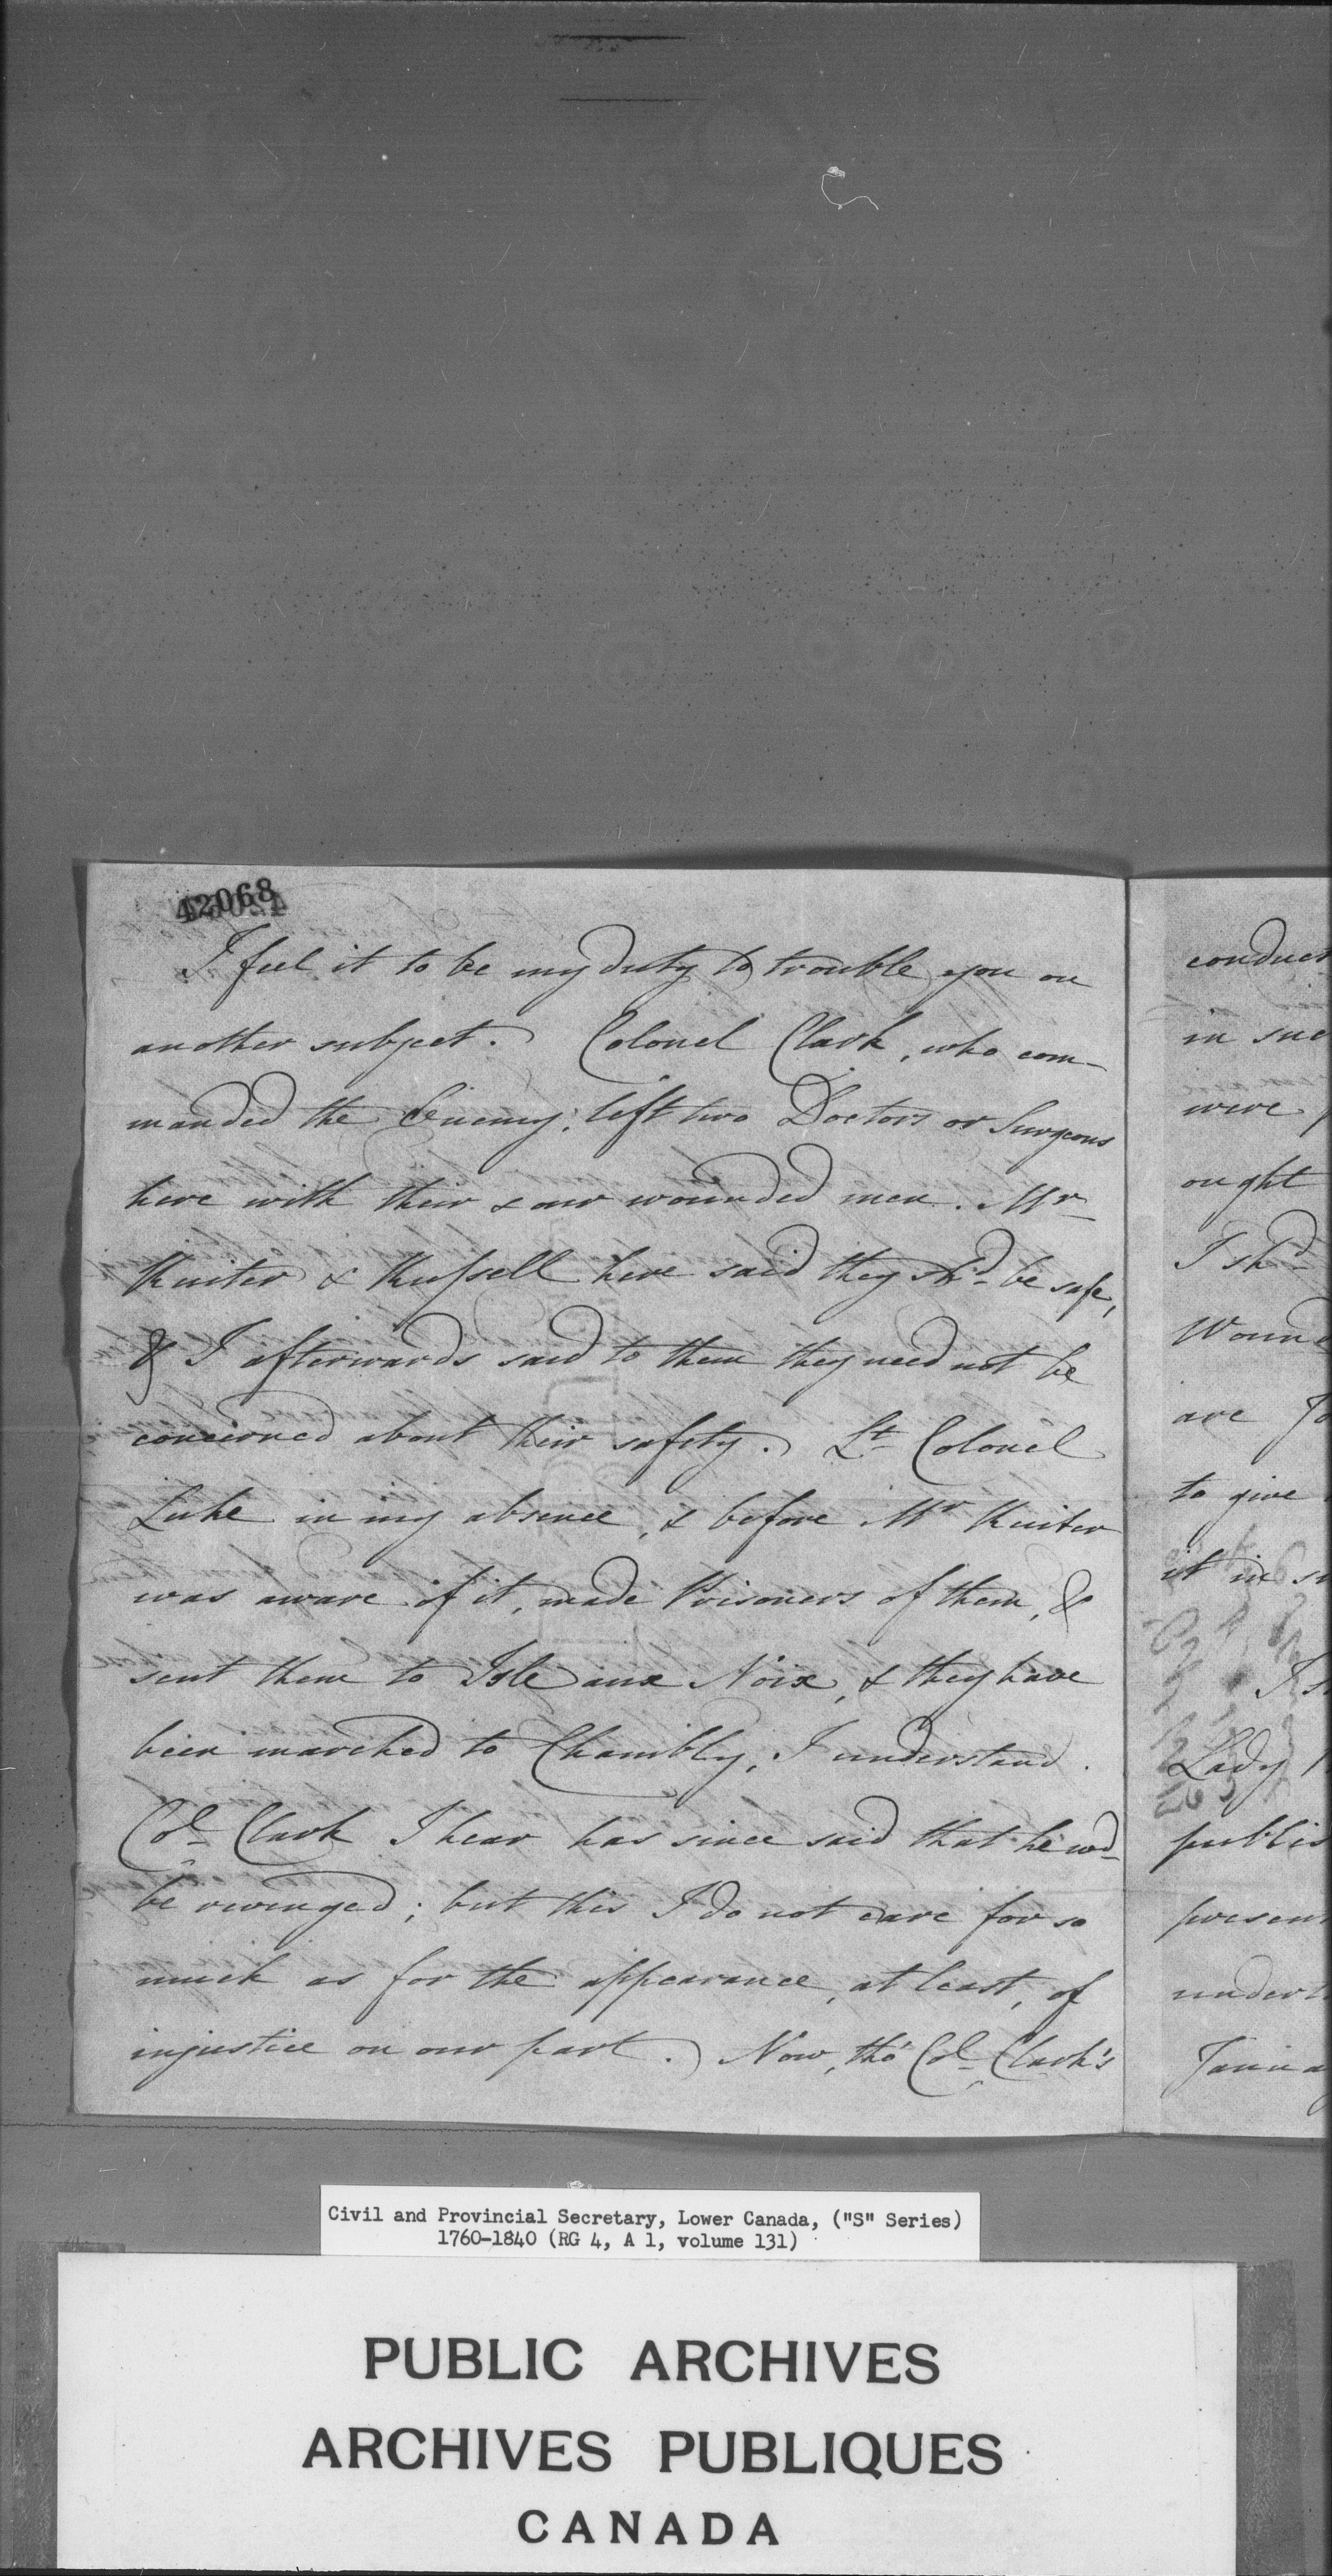 42068
I feel it to be my duty to trouble you on
another subject. Colonel Clark, who com-
manded the Enemy, left two Doctors or Surgeons
here with their & our wounded men. Mr
Ruiter & Russell here said they shd be safe,
& I afterwards said to them they need not be
concerned about their safety. Lt Colonel
Luke in my absence, & before Mr Ruiter
was aware of it, made Prisoners of them, &
sent them to Isle aux Noix, & they have
been marched to Chambly, I understand.
Col Clark I hear has since said that he wd
be revenged; but this I do not care for so
much as for the appearance, at least, of
injustice on our part. Now, tho' Col Clark's
conduct
in suc
were
ought
I shd
Wound
are
to give
it in
Lady
publis
presen
under
Civil and Provincial Secretary, Lower Canada, ("S" Series)
1760-1840 (RG 4, A 1, volume 131)
PUBLIC ARCHIVES
ARCHIVES PUBLIQUES
CANADA